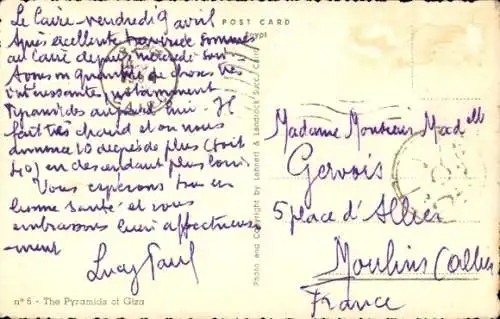 Le Caire - vendredi 9 avril
Après excellente traversée sommes
au Caire depuis mercredi soir
Avons vu quantité de choses très
intéressantes, notamment
Pyramides aujourd'hui. Il
fait très chaud et on nous
annonce 10 degrés de plus (soit
40) en descendant plus loin
Vous espérons tous en
bonne santé et vous
embrassons bien affectueuse
ment
Lucy Paul
n° 6 - The Pyramids of Giza
POST CARD
Egypt
Photo and Copyright by Lehnert & Landrock Succ. Cairo
Madame Monsieur Mad elle
Gervois
5 place d'Allier
Moulins (Allier)
France